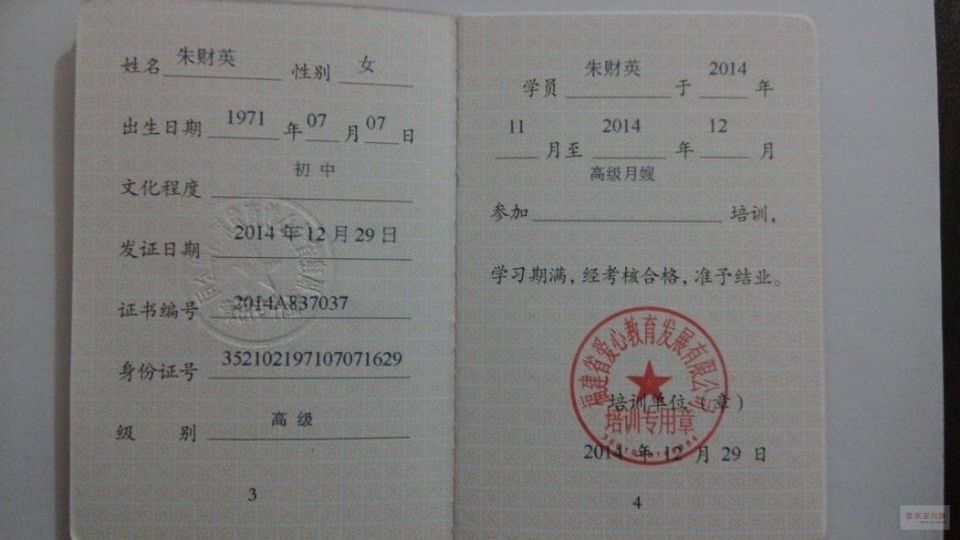 姓名 朱财英 性别 女
出生日期 1971 年 07 月 07 日
文化程度 初中
发证日期 2014 年 12 月 29 日
证书编号 2014A837037
身份证号 352102197107071629
级 别 高级
3
学员 朱财英 于 2014 年
11 月至 2014 年 12 月
参加 高级月嫂 培训,
学习期满,经考核合格,准予结业。
福建省爱心教育发展有限公司
培训单位(章)
培训专用章
2014 年 12 月 29 日
4